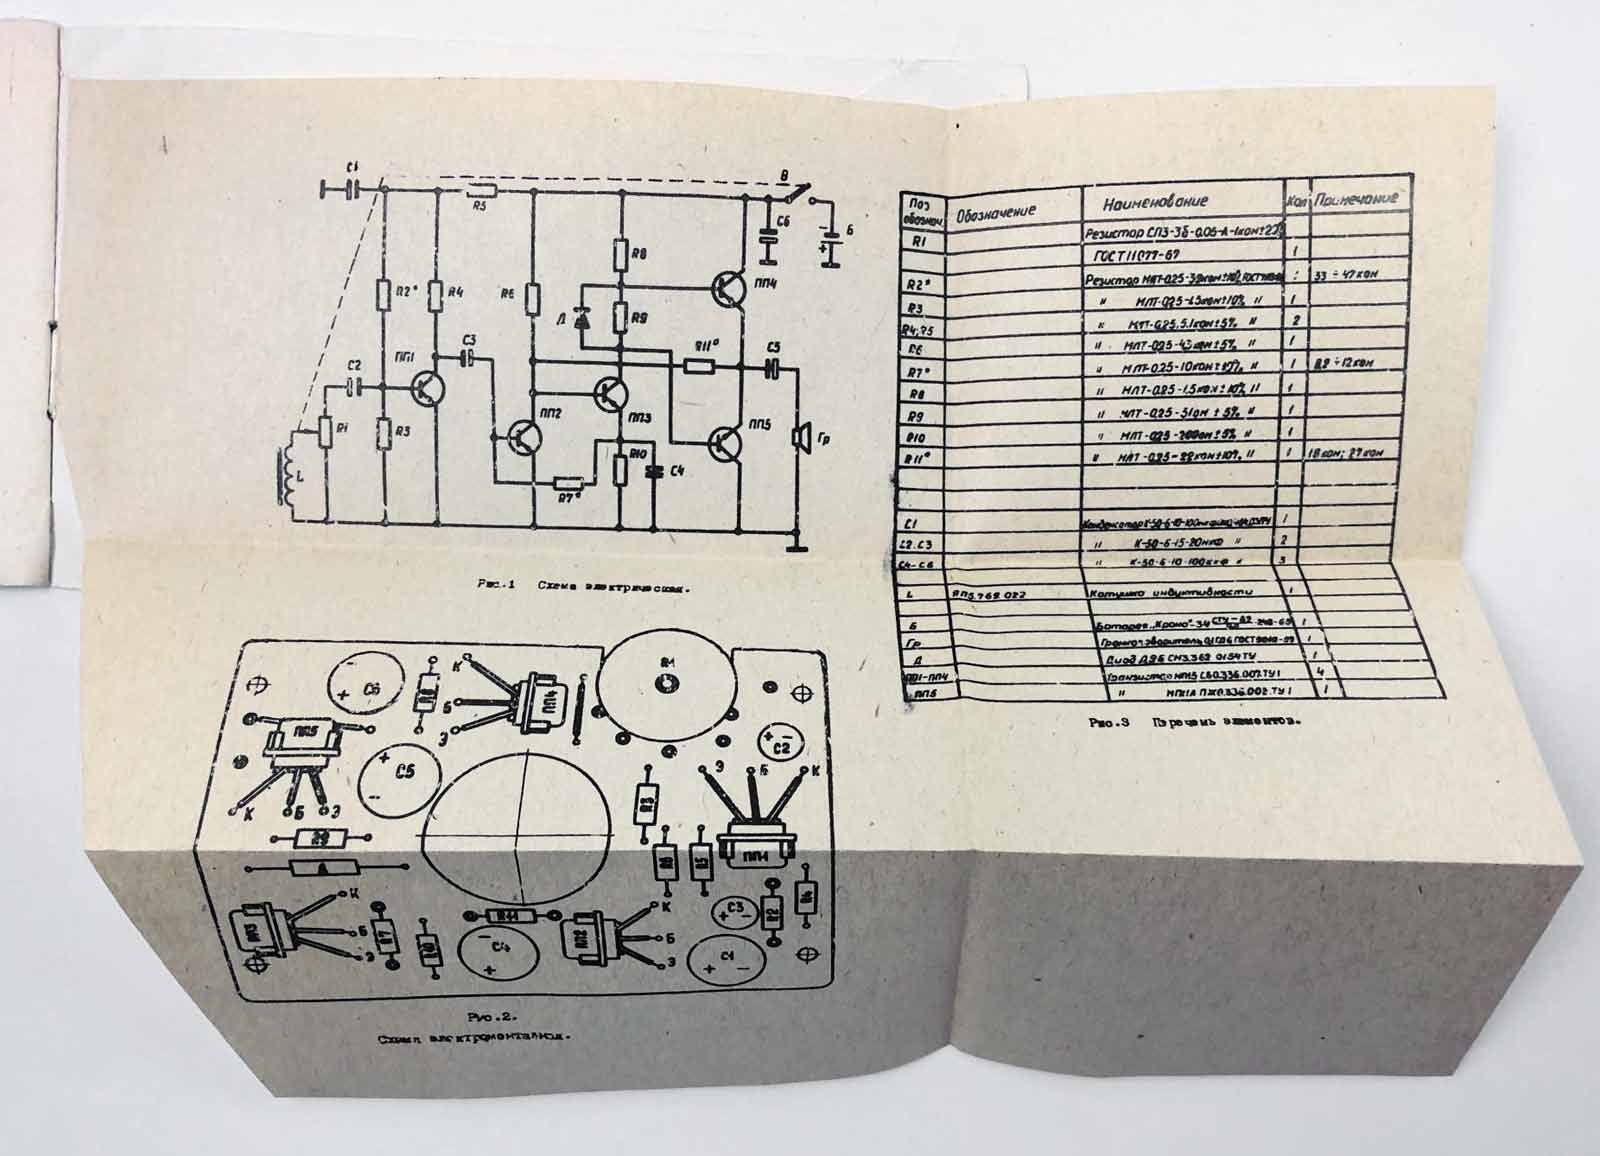 C1
R5
В
C6
Б
R2*
R4
R6
R8
ПП4
Д
R9
R11*
C5
ПП1
C3
C2
R1
R3
ПП2
ПП3
ПП5
Гр
L
R7*
R10
C4
Рис.1 Схема электрическая.
Поз обознач. Обозначение Наименование Кол Примечание
R1 Резистор СП3-3б-0.05-А-1ком±22%
ГОСТ11077-67 1
R2* Резистор МЛТ-0.25-39ком±10% 33÷47ком
R3 " МЛТ-0.25-1.5ком±10% " 1
R4,R5 " МЛТ-0.25.5.1ком±5% " 2
R6 " МЛТ-0.25-43ком±5% " 1
R7* " МЛТ-0.25-10ком±10% " 1 8.2÷12ком
R8 " МЛТ-0.25-1.5ком±10% " 1
R9 " МЛТ-0.25-51ом±5% " 1
R10 " МЛТ-0.25-200ом±5% " 1
R11* " МЛТ-0.25-22ком±10% " 1 18ком; 27ком
C1 Конденсатор К-50-6-10-100мкф 1
C2.C3 " К-50-6-15-20мкф " 2
C4-C6 " К-50-6-10-100мкф " 3
L ЯП5.769.022 Катушка индуктивности 1
Б Батарея "Крона" 1
Гр Громкоговоритель 1
Д Диод Д9Б СМ3.362 015ТУ 1
ПП1-ПП4 Транзистор МП15 СБ0.336.007.ТУ1 4
ПП5 " ПЖ0.336.002.ТУ1 1
Рис.3 Перечень элементов.
C6
R8
К
Б
Э
ПП4
R1
ПП5
C5
C2
К
Б
Э
R3
Э
Б
К
R9
Д
R6
R5
ПП1
R4
ПП3
К
Б
Э
R7
R10
R11
C4
ПП2
К
Б
Э
C3
R2
C1
Рис.2.
Схема электромонтажная.